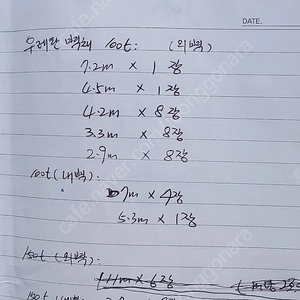 DATE.
우레탄 벽체 100t : (외벽)
7.2m × 1장
4.5m × 1장
4.2m × 8장
3.3m × 8장
2.9m × 8장
100t (내벽) :
7m × 4장
5.3m × 1장
150t (외벽)
11m × 6장